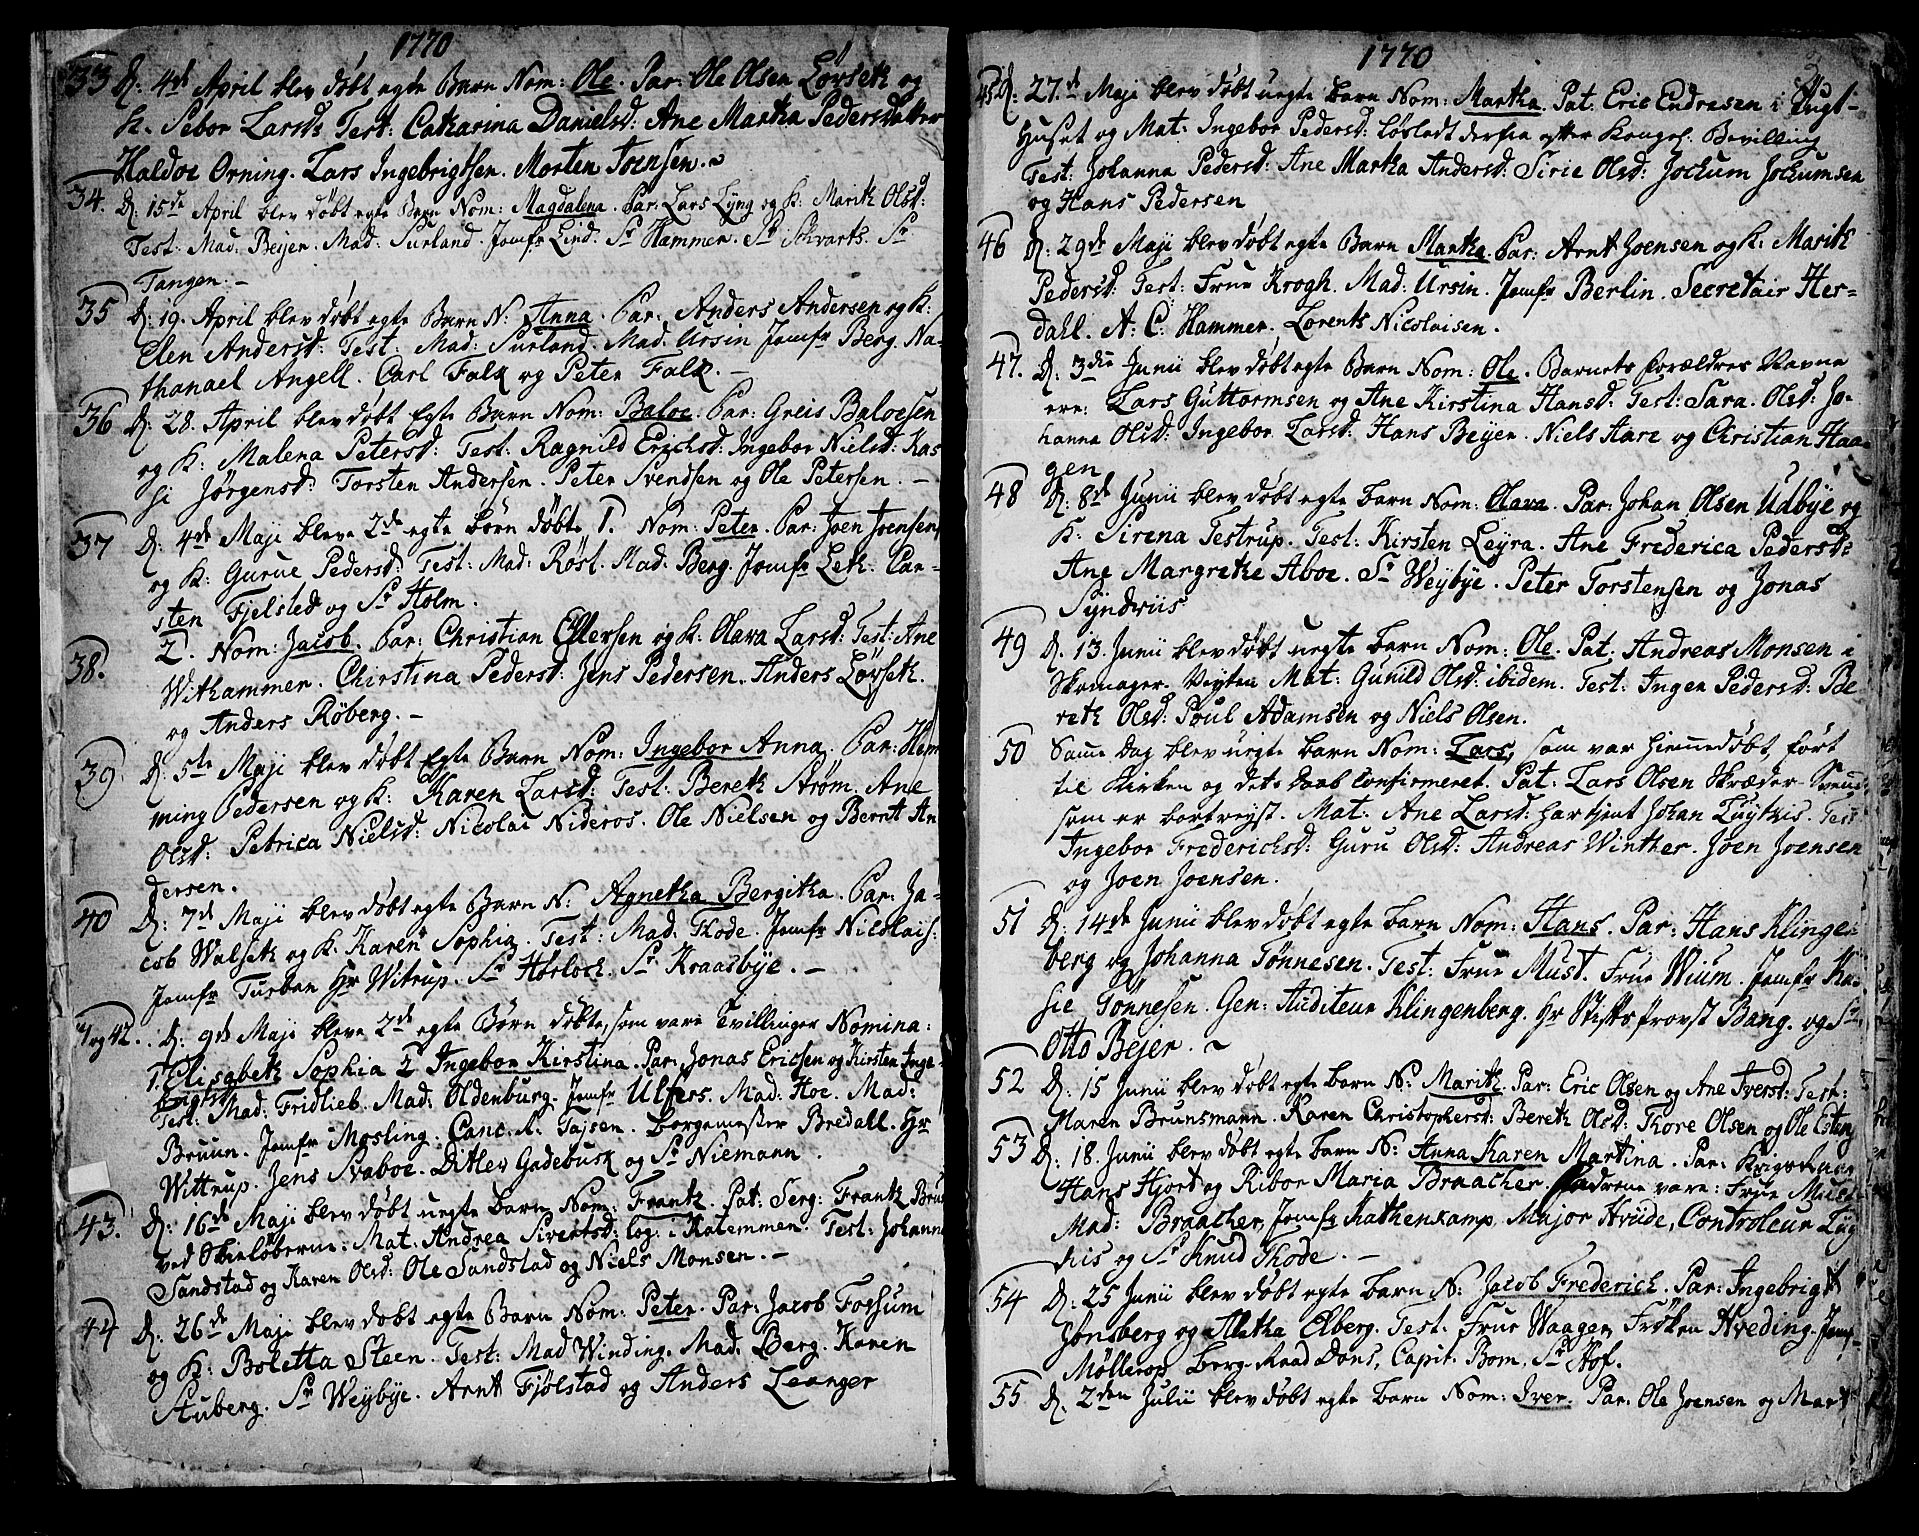 1770
33 D: 4de April blev døbt egte Barn Nom: Ole. Par: Ole Olsen Løvseth og
K. Sebor Larsd: Test: Catharina Danielsd: Ane Martha Pedersdatter
Haldor Orning. Lars Ingebrigtsen. Morten Toensen.
34. D: 15de April blev døbt egte Barn Nom: Magdalena. Par: Lars Lyng og K: Marith Olsd:
Test: Mad: Beijer. Mad: Surland. Jomfr Lind. Sr Hammer. Sr Schvarts. Sr
Tangen:
35 D: 19. April blev døbt egte Barn N: Anna. Par: Anders Andersen og K:
Elen Andersd: Test: Mad: Surland. Mad. Ursin Jomfr Berg. Na-
thanael Angell. Carl Falk og Peter Falk.
36 D: 28. April blev døbt Egte Barn Nom: Baloe. Par: Greis Baloesen
og K: Malena Petersd: Test: Ragnild Erichsd: Ingebor Nielsd: Kas
si Jørgensd: Torsten Andersen. Peter Svendsen og Ole Petersen.
37 D: 4de Maji bleve 2de egte Børn døbte 1. Nom: Peter. Par: Joen Joensen
og K: Gurue Pedersd: Test: Mad: Røst. Mad. Berg. Jomfr Leth. Car-
sten Fjelsted og Sr Holm.
38. 2. Nom: Jacob. Par: Christian Ellersen og K: Olava Larsd: Test: Ane
Withammer. Chirstina Pedersd: Jens Pedersen. Anders Løvseth.
og Anders Røberg.
39 D: 5te Maji blev døbt Egte Barn Nom: Ingebor Anna. Par: Hem
ming Pedersen og K: Karen Larsd: Test: Bereth Strøm. Ane
Olsd: Petrica Nielsd: Nicolai Nideros. Ole Nielsen og Bernt An
dersen.
40 D: 7de Maji blev døbt egte Barn N: Agnetha Bergitha. Par: Ja-
cob Walseth og K. Karen Sophia. Test: Mad: Thode. Jomfr Nicolais:
Jomfr Turban Hr Witrup. Sr Horloch. Sr Kraasbye.
41 og 42. D: 9de Maji bleve 2de egte Børn døbte, som vare Tvillinger Nomina:
1. Elisabeth Sophia 2 Ingebor Kirstina. Par: Jonas Ericsen og Kirsten Inge-
brigtsd
Test: Mad: Fridlieb. Mad: Oldenburg. Jomfr Ulfers. Mad: Hoe. Mad:
Bruun. Jomfr Mosling. Canc. R. Tajsen. Borgemester Bredall. Hr
Wittrup. Jens Svaboe. Ditlev Gadebusk og Sr Niemann.
43. D: 16de Maji blev døbt uegte Barn Nom: Frantz. Pat: Serg: Frantz Brun
ved Skieløberne: Mat: Andrea Sivertsd: log: i Katemmen. Test: Johanna
Sandstad og Karen Olsd: Ole Sandstad og Niels Monsen.
44 D: 26de Maji blev døbt egte Barn Nom: Peter. Par: Jacob Forsum
og K: Boletta Steen. Test: Mad Winding. Mad. Berg. Karen
Stuberg. Sr Weybye. Arnt Fjølstad og Anders Leanger
1770
45 D: 27.d Maji blev døbt uegte Barn Nom: Martha. Pat: Eric Endresen i Tugt-
Huset og Mat: Ingebor Pedersd: løsladt derfra efter Kongel. Bevilling
Test: Johanna Pedersd: Ane Martha Andersd: Sirie Olsd: Jochum Jochumsen
og Hans Pedersen
46 D: 29de Maji blev døbt egte Barn Martha. Par: Arnt Joensen og K: Marith
Pedersd: Test: Frue Krogh. Mad: Ursin. Jomfr Berlin. Secretair Her-
dahl. A: C: Hammer. Lorents Nicolaisen.
47. D: 3die Junii blev døbt egte Barn Nom: Ole. Barnets Forældres Navne
ere: Lars Guttormsen og Ane Kirstina Hansd: Test: Sara. Olsd: Jo-
hanna Olsd: Ingebor Larsd: Hans Beijer. Niels Aare og Christian Haa-
gen
48 D: 8de Junii blev døbt egte Barn Nom: Olava. Par: Johan Olsen Udbye og
K: Sirena Testrup. Test: Kirsten Leyra. Ane Frederica Pedersd:
Ane Margrethe Aboe. Sr Weybye. Peter Torstensen og Jonas
Syndriis
49 D: 13. Junii blev døbt uegte Barn Nom: Ole. Pat: Andreas Monsen i
Skomager-Veyten Mat: Gunild Olsd: ibidem. Test: Ingen Pedersd: Be-
reth Olsd: Poul Adamsen og Niels Olsen.
50 Same Dag blev uegte Barn Nom: Lars, som var hiemmedøbt, ført
til Kirken og dets Daab confirmeret. Pat: Lars Olsen Skræder-Svend,
som er bortreyst. Mat: Ane Larsd: har tjent Johan Luythis. Test
Ingebor Frederichsd: Guru Olsd: Andreas Winther. Joen Joensen
og Joen Joensen.
51 D: 14de Junii blev døbt egte Barn Nom: Hans. Par: Hans Klingen-
berg og Johanna Tønnesen. Test: Frue Must. Frue Wium. Jomfr Ka-
sie Tønnesen. Gen: Auditeur Klingenberg. Hr Stiftsprovst Bang. og Sr
Otto Bejer.
52 D: 15 Junii blev døbt egte Barn N: Marith Par: Eric Olsen og Ane Iversd: Test:
Maren Brunsmann. Karen Christophersd: Bereth Olsd: Thore Olsen og Ole Esten
53 D: 18 Junii blev døbt egte Barn N: Anna Karen Martina. Par:
Hans Hjort og Ribor Maria Braacher. Fadrene vare: Frue Must
Mad: Braacher, Jomfr Kathenkamp, Major Hvide, Controleur Luy
this og Sr Knud Thode.
54 D: 25 Junii blev døbt egte Barn N: Jacob Frederich. Par: Ingebrigt
Jonsberg og Aletha Elberg. Test: Frue Waagen, Frøken Hveding. Jomf-
Møllerop Berg-Raad Dons, Capit. Bom, Sr Hof.
55 D: 2den Julii blev døbt egte Barn Nom: Iver. Par. Ole Joensen og Mart